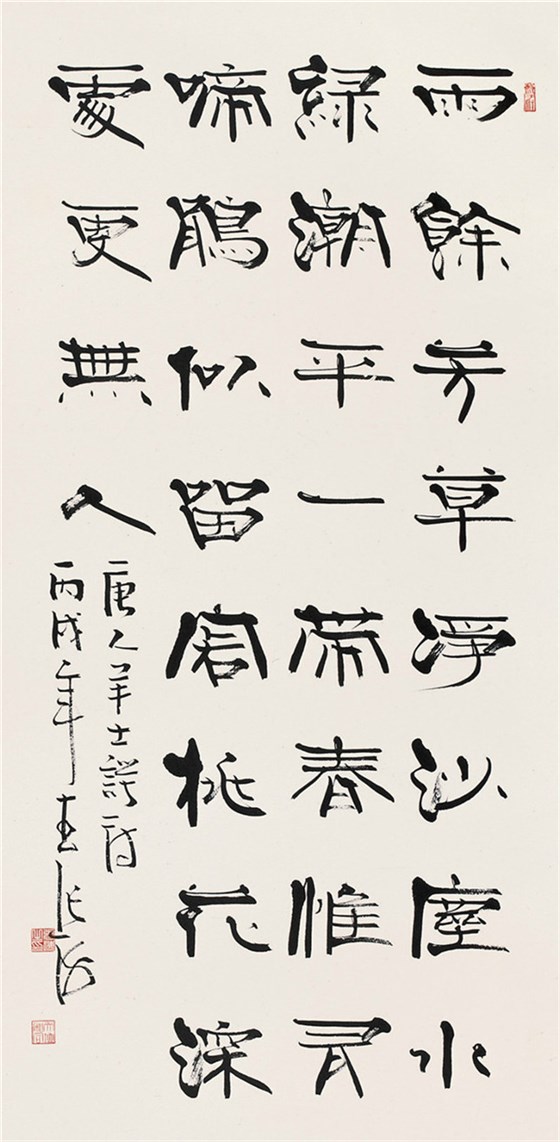 雨餘芳草淨沙塵水
綠潮平一帶春惟有
啼鵑似留客桃花深
處更無人
唐人羊士諤詩
丙戌年張海